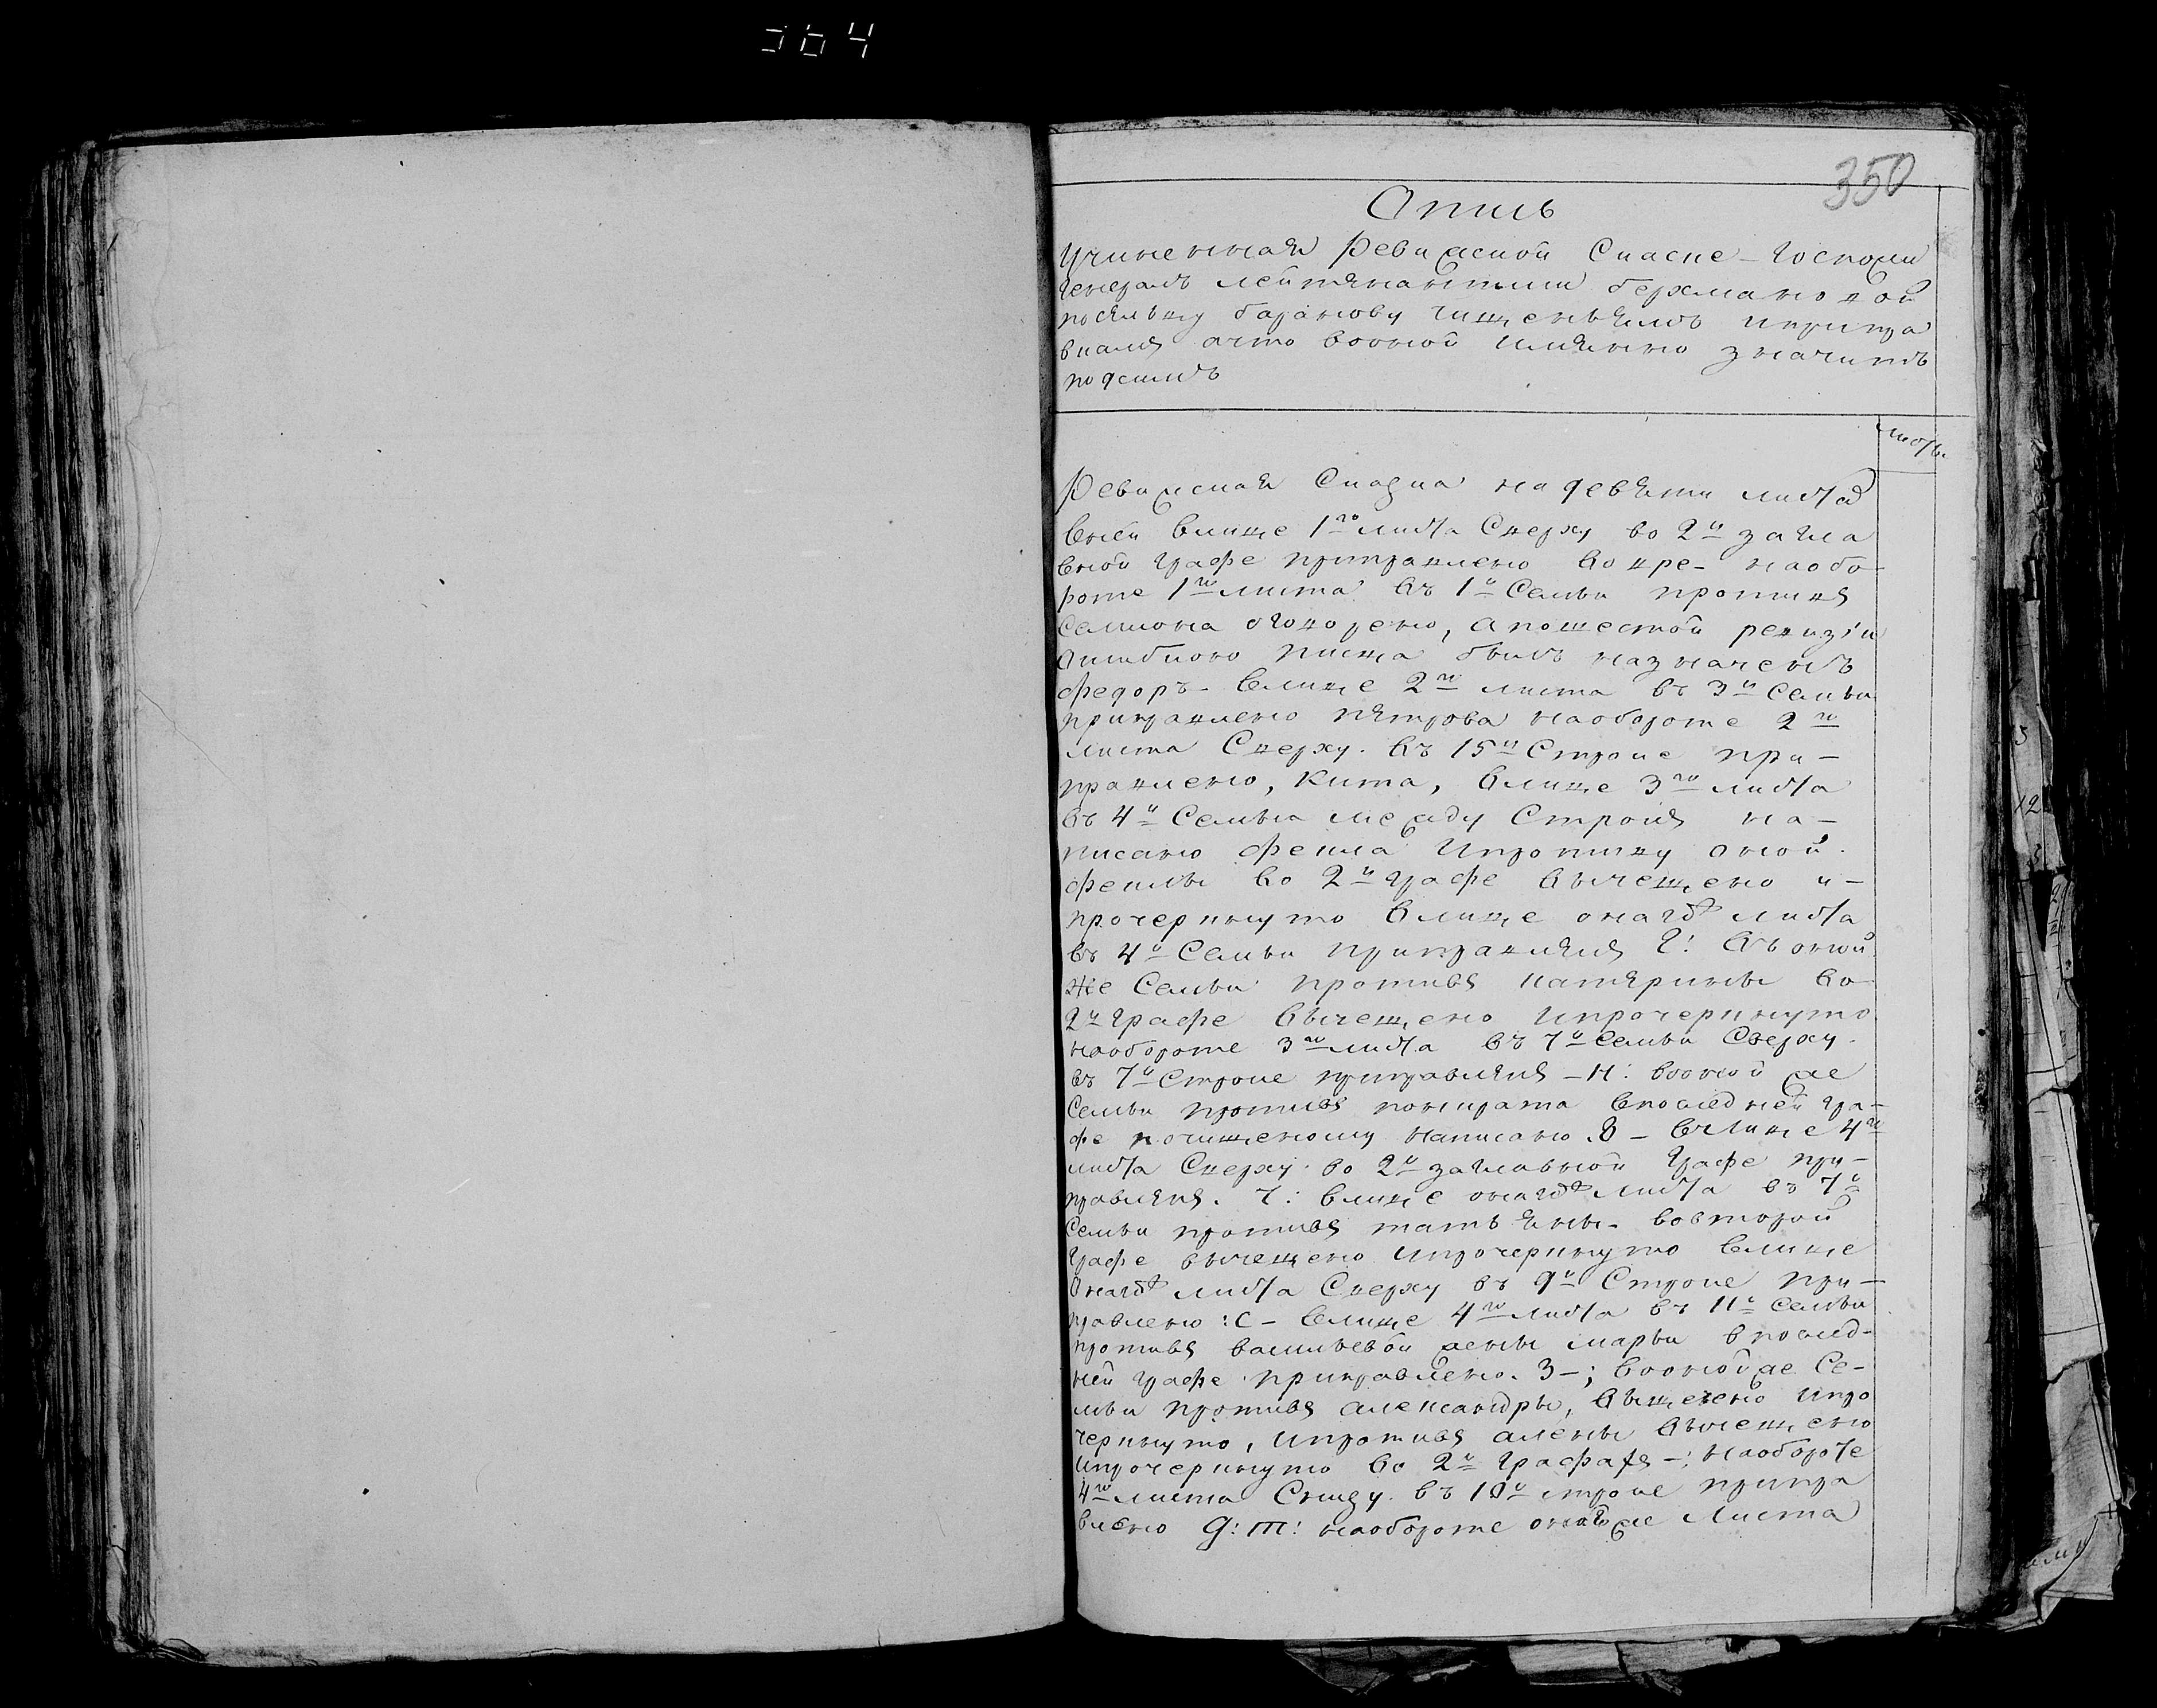 364
350
Опись
Учиненная Ревижской Скаске Госпожи
Генералъ лейтенантши бержановой
посельцу баранову чищенъямъ и припра
вкамъ а что во оной имянно значитъ
подсимъ
листы
Ревижская Скаска на девяти листа
в ней в лице 1го листа Сверху во 2й загла
вной графе приправлено во вре- на обо
роте 1го листа въ 1й Семьи противъ
Семиона оговорено, а по шестой ревизiи
ошибкою писца былъ назначенъ
федоръ- в лице 2го листа въ 3й Семьи
приправлено петрова на обороте 2го
листа Сверху. въ 15й Строке при-
правлено, кита, в лице 3го листа
въ 4й Семьи между Строкъ на-
писано фекла и противу оной
феклы во 2й графе вычещено и-
прочеркнуто в лице онагож листа
въ 4й Семьи приправлянъ Г: въ оной
же Семьи противъ катярины во
2й графе вычещено и прочеркнуто
на обороте 3го листа въ 7й Семьи Сверху.
въ 7й Строке приправлянъ - Н: во оной же
Семьи противъ поикрата в последней гра-
фе по чищеному написано .8 - в Лице 4го
листа Сверху. во 2й заглавной графе при-
правлянъ. 7: в лице онагож листа въ 7й
Семьи противъ татьяны- во второй
графе вычещено и прочеркнуто в лице
Онагож листа Сверху въ 9й Строке при-
правлено :С- в лице 4го листа въ 11й Семьи
противъ васильевой жены марьи в послед-
ней графе приправлено. 3-; во оной же Се-
мьи противъ александры, вычещено и про
черкнуто, и противъ алены вычещено
и прочеркнуто во 2й графахъ -: на обороте
4го листа Снизу. въ 10й строке припра
влено Д: Т: на обороте онагоже Листа